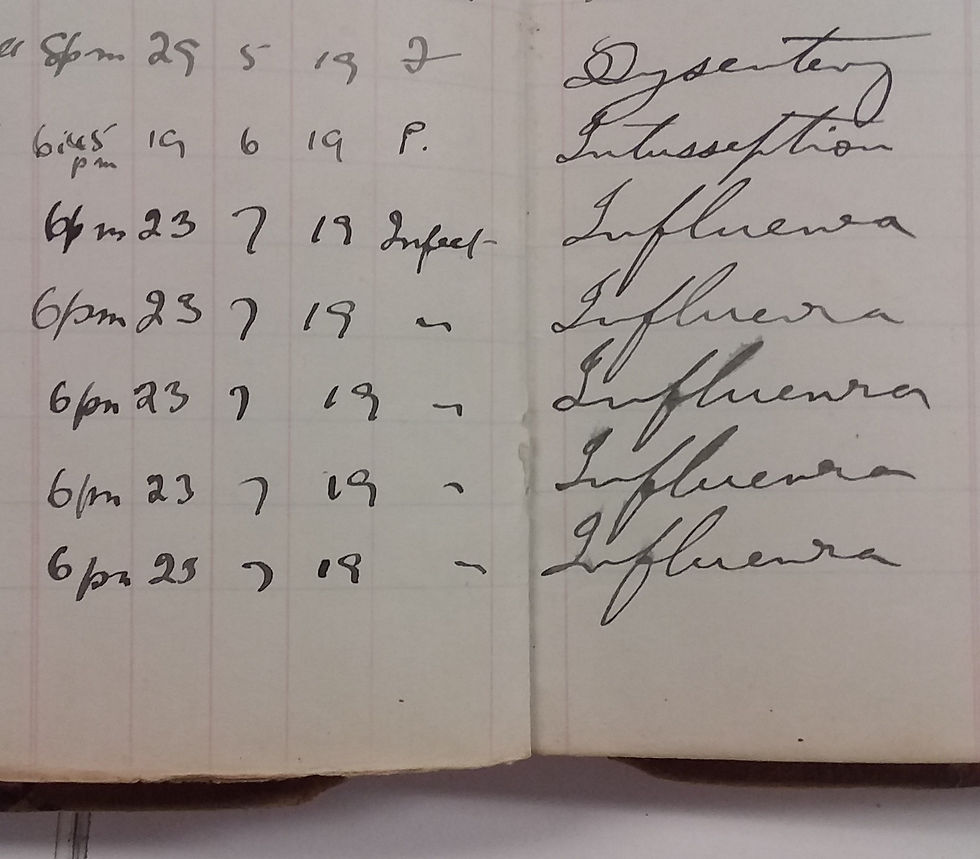 er 8pm 29 5 19 I Dysentery
6.45 pm 19 6 19 P. Intusseption
6pm 23 7 19 Infect- Influenza
6pm 23 7 19 " Influenza
6pm 23 7 19 " Influenza
6pm 23 7 19 " Influenza
6pm 23 7 19 " Influenza